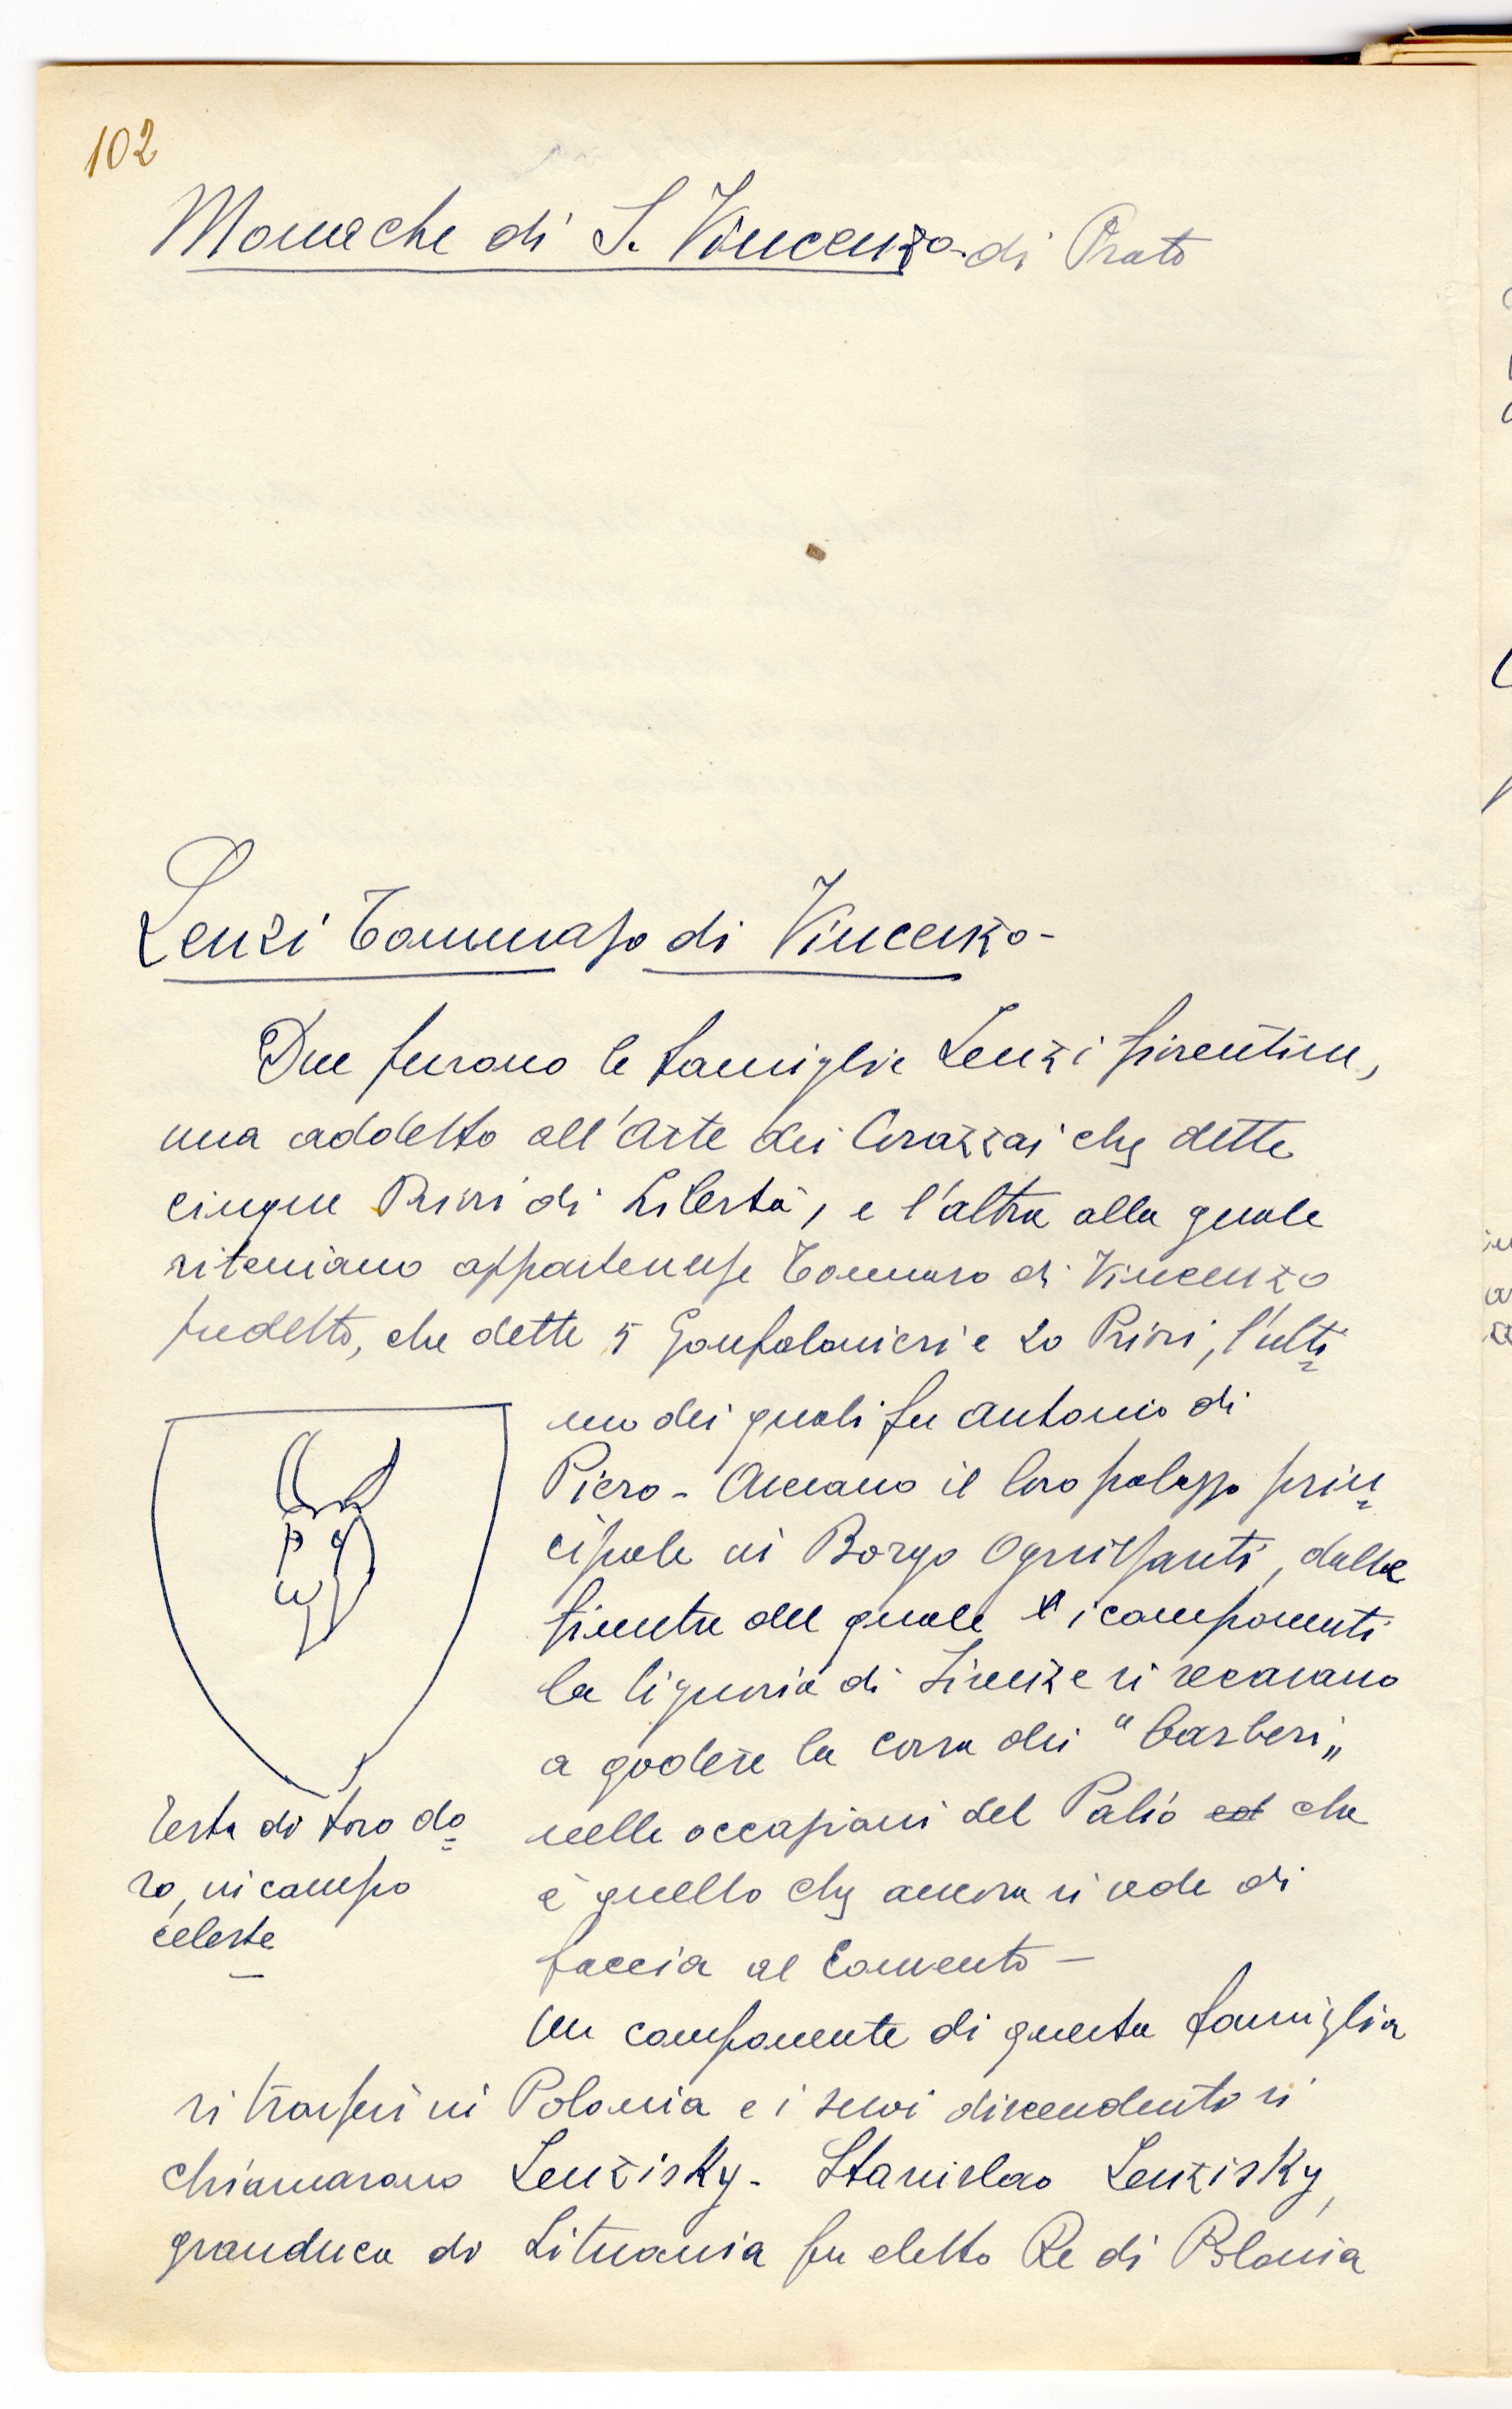 102
Monache di S. Vincenzo di Prato
Lenzi Tommaso di Vincenzo -
Due furono le famiglie Lenzi fiorentine,
una addetto all'Arte dei Corazzai che dette
cinque Priori di Libertà, e l'altra alla quale
riteniamo appartenesse Tommaso di Vincenzo
sudetto, che dette 5 Gonfalonieri e 20 Priori, l'ulti=
mo dei quali fu Antonio di
Piero - Avevano il loro palazzo prin=
cipale in Borgo Ognissanti, dalle
finestre del quale i componenti
la Signoria di Firenze si recavano
a godere la corsa dei "Barberi"
nelle occasioni del Palio che
è quello che ancora si vede di
faccia al Convento —
Testa di toro do=
ro, in campo
celeste
Un componente di questa famiglia
si trasferì in Polonia e i suoi discendenti si
chiamarono Lenzisky - Stanislao Lenzisky,
granduca di Lituania fu eletto Re di Polonia